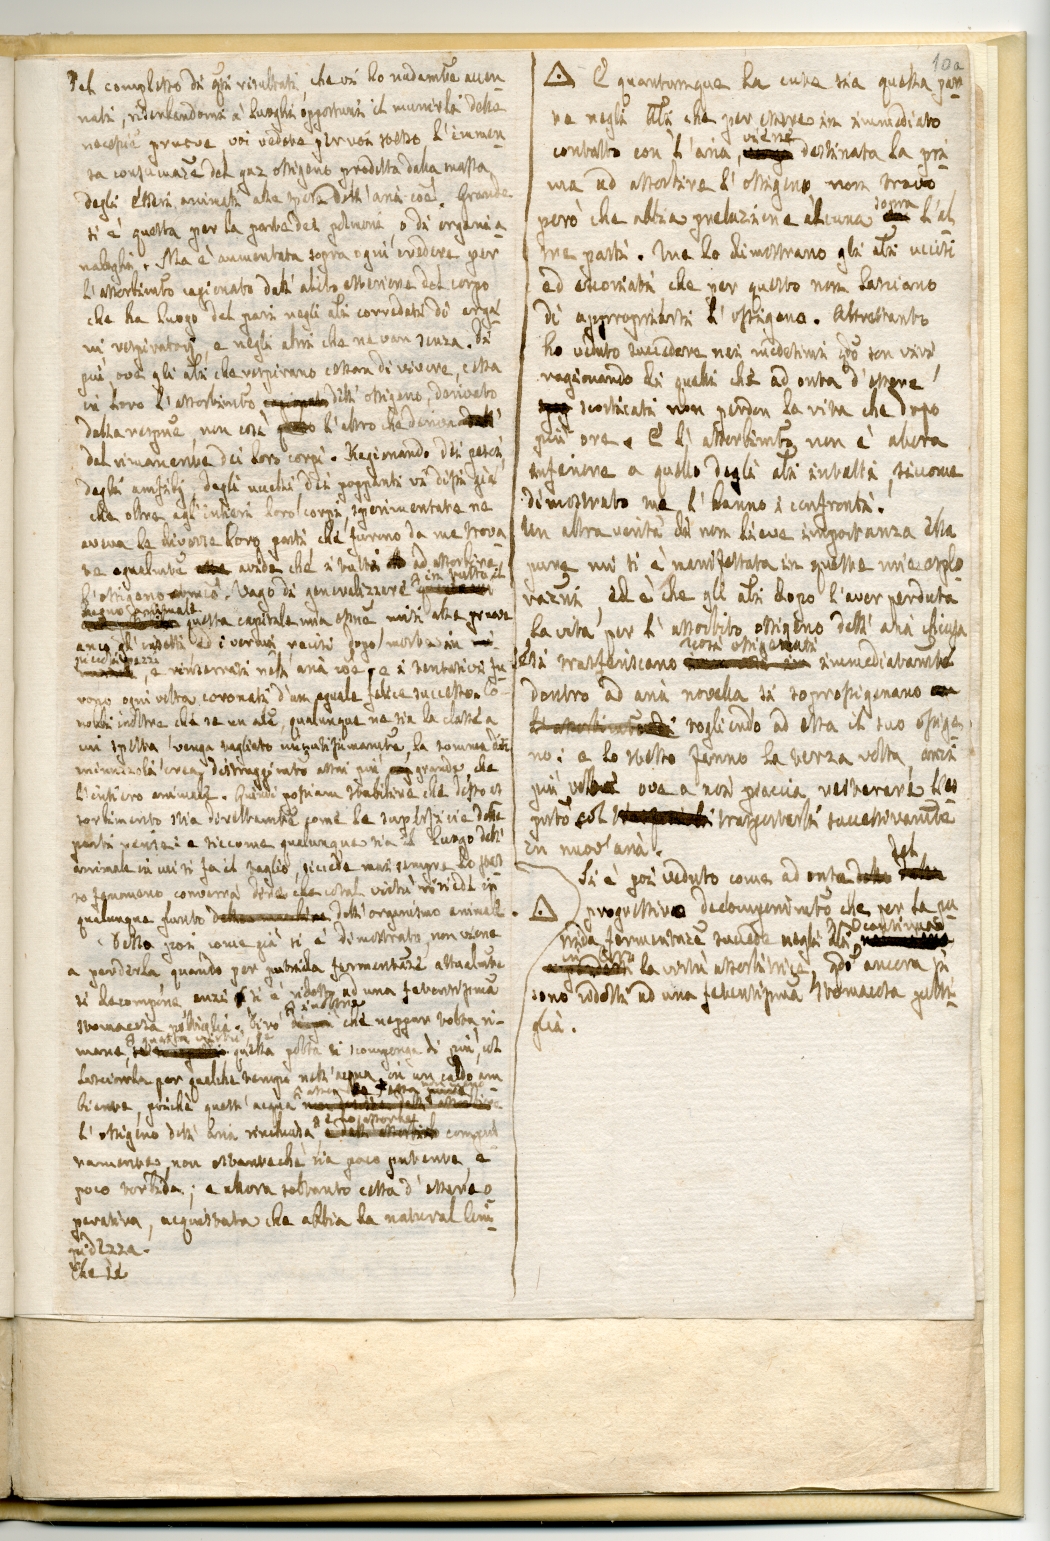 10a
Nel complesso di qsti risultati, che vi ho nudamte accen-
nati, riserbandomi a' luoghi opportuni il munirli delle
necessie pruove voi vedete per voi stesso l'immen-
sa consumaze del gaz ossigeno prodotta dalla massa
degli esseri animati alle spese dell'aria coe. Grande
si è questa per la parte dei polmoni, o di organi a-
naloghi. Ma è aumentata sopra ogni credere per
l'assorbimto cagionato dall'abito esteriore del corpo
che ha luogo del pari negli ali corredati di orga-
ni respiratorj, e negli altri che ne van senza. Di
più, ove gli ali che respirano cessan di vivere, cessa
in loro l'assorbimto dell'ossigeno, derivato
dalla respne, non così l'altro che deriva
dal rimanente dei loro corpi. Ragionando dei pesci,
degli amfibj, degli uccelli dei poppanti vi dissi già
che oltre agl'intieri loro corpi, sperimentate ne
aveva le diverse loro parti che furono da me trova-
te egualmte avide che i tutti ad assorbire
l'ossigeno. Vago di generalizzare in tutto il
regno animale questa capitale mia ossne misi alle pruove
anco gl'insetti ed i vermi recisi dopo morte in
piccoli pezzi, e rinserrati nell'aria coe, e i tentativi fu-
rono ogni volta coronati d'un eguale felice successo. Co-
nobbi inoltre che se un ale, qualunque ne sia la classe a
cui spetta venga tagliato minutissimamente, la somma delle
minuzzola crea distruggimto assai più grande, che
l'intiero animale. Quindi possiam stabilire che desso as-
sorbimento stia direttamte come le superficie delle
parti recise: e siccome qualunque sia il luogo dell'
animale in cui si fa il taglio, succede mai sempre lo stes-
so fenomeno converrà dire che cotal virtù risieda in
qualunque punto dell'organismo animale.
Dessa poi come già si è dimostrato, non viene
a perderla quando per putrida fermentaze attualmte
si decompone anzi si è ridotto ad una fetentissima
stomacosa poltiglia. Dirò inoltre che neppur talora ri-
mane, questa polta si scompone di più, col
lasciarla per qualche tempo nell'acqua, in un caldo am-
biente, poichè quest'acqua
l'ossigeno dell'aria rinchiusa compiu-
tamente, non ostante che sia poco putente, e
poco torbida; e allora soltanto cessa d'essere o-
perativa, acquistata che abbia la natural lim-
pidezza.
Che se
E quantunque la cute sia quella par-
te negli ali che per essere in immediato
contatto con l'aria, viene destinata la pri-
ma ad assorbire l'ossigeno non trovo
però che abbia prelazione alcuna sopra l'al-
tre parti. Me lo dimostrano gli ali uccisi
ed escoriati che per questo non lasciano
di appropriarsi l'ossigeno. Altrettanto
ho veduto succedere nei medesimi qdo son vivi
ragionando di quelli che ad onta d'essere
scorticati non perdon la vita che dopo
più ore. E l'assorbimto non è allora
inferiore a quello degli ali intatti, siccome
dimostrato me l'hanno i confronti.
Un altra verità di non lieve importanza che
pure mi si è manifestata in queste mie esplo-
razni, ed è che gli ali dopo l'aver perduta
la vita, per l'assorbito ossigeno dell'aria chiusa
se si trasferiscano così ossigenati immediatamte
dentro ad aria novella si soprossigenano
togliendo ad essa il suo ossige-
no: e lo stesso fanno la terza volta, anzi
più volte ove a noi piaccia reiterare l'es-
perto col trasportarli successivamte
in nuov'aria.
Si è poi veduto come ad onta del
progressivo decomponimto che per la pu-
trida fermentaze succede negli ali, continua
in essi la virtù assorbitrice, qdo ancora si
sono ridotti ad una fetentissima stomacosa polti-
glia.